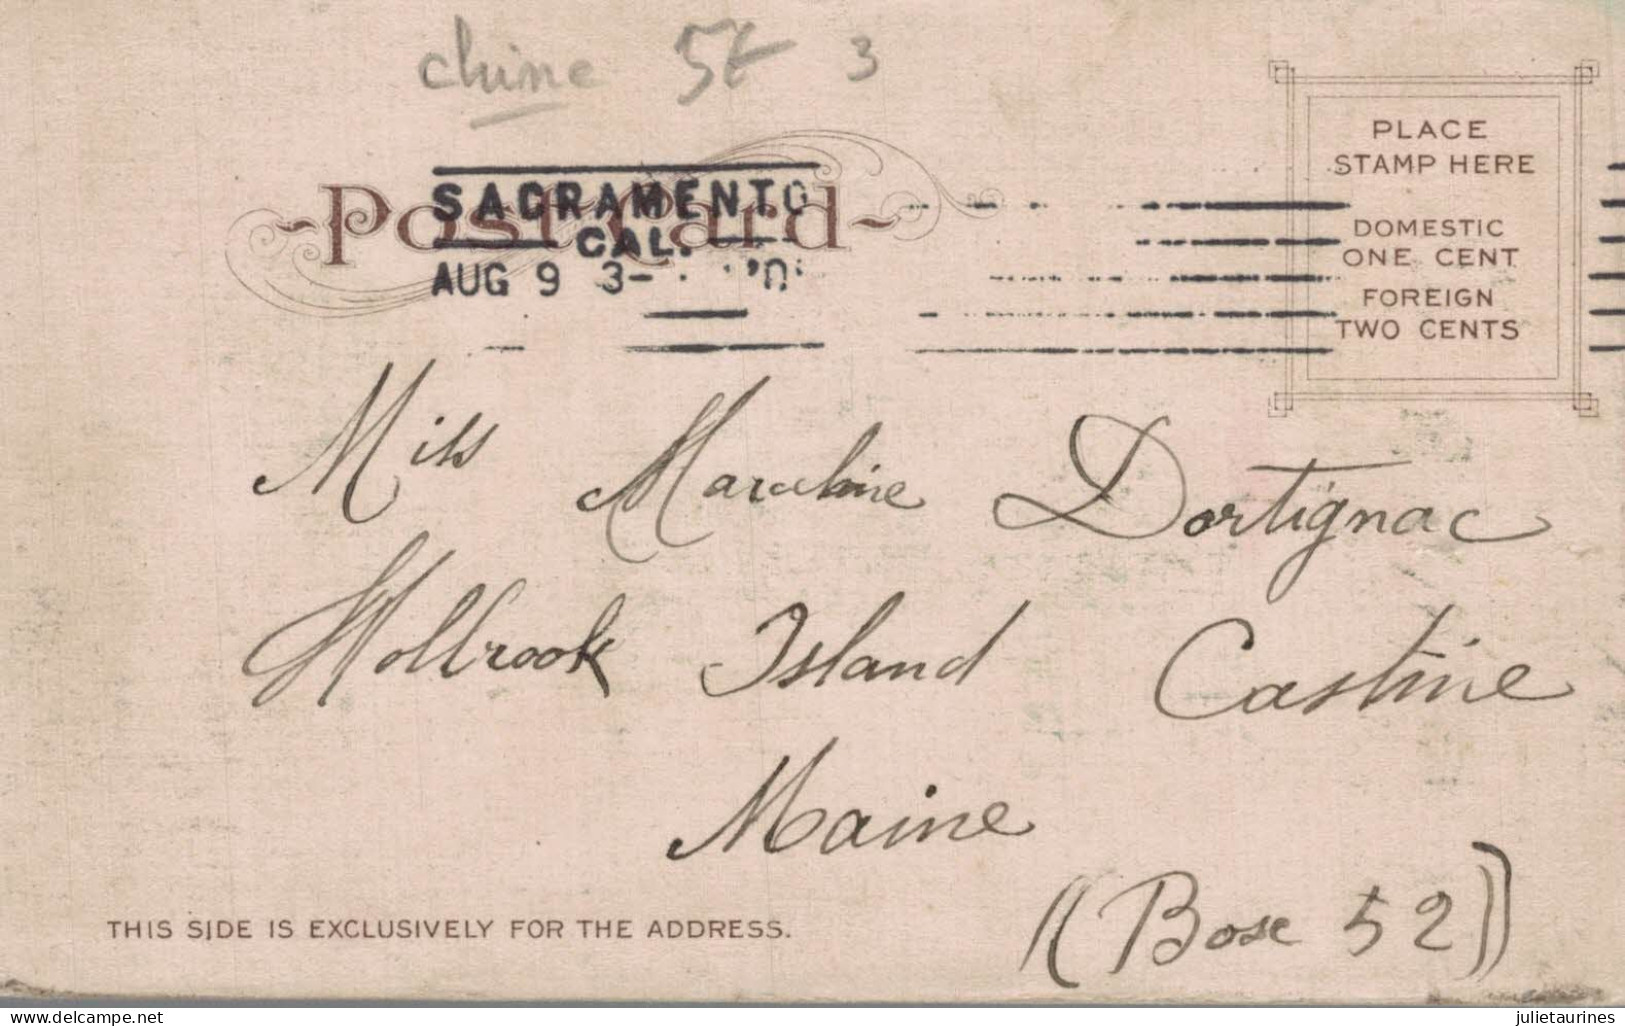 chine 5€ 3
~Post Card~
SACRAMENTO
CAL.
AUG 9 3-
PLACE
STAMP HERE
DOMESTIC
ONE CENT
FOREIGN
TWO CENTS
Miss Dortignac
Holbrook Island Castine
Maine
(Bose 52)
THIS SIDE IS EXCLUSIVELY FOR THE ADDRESS.
delcampe.net
julietaurines